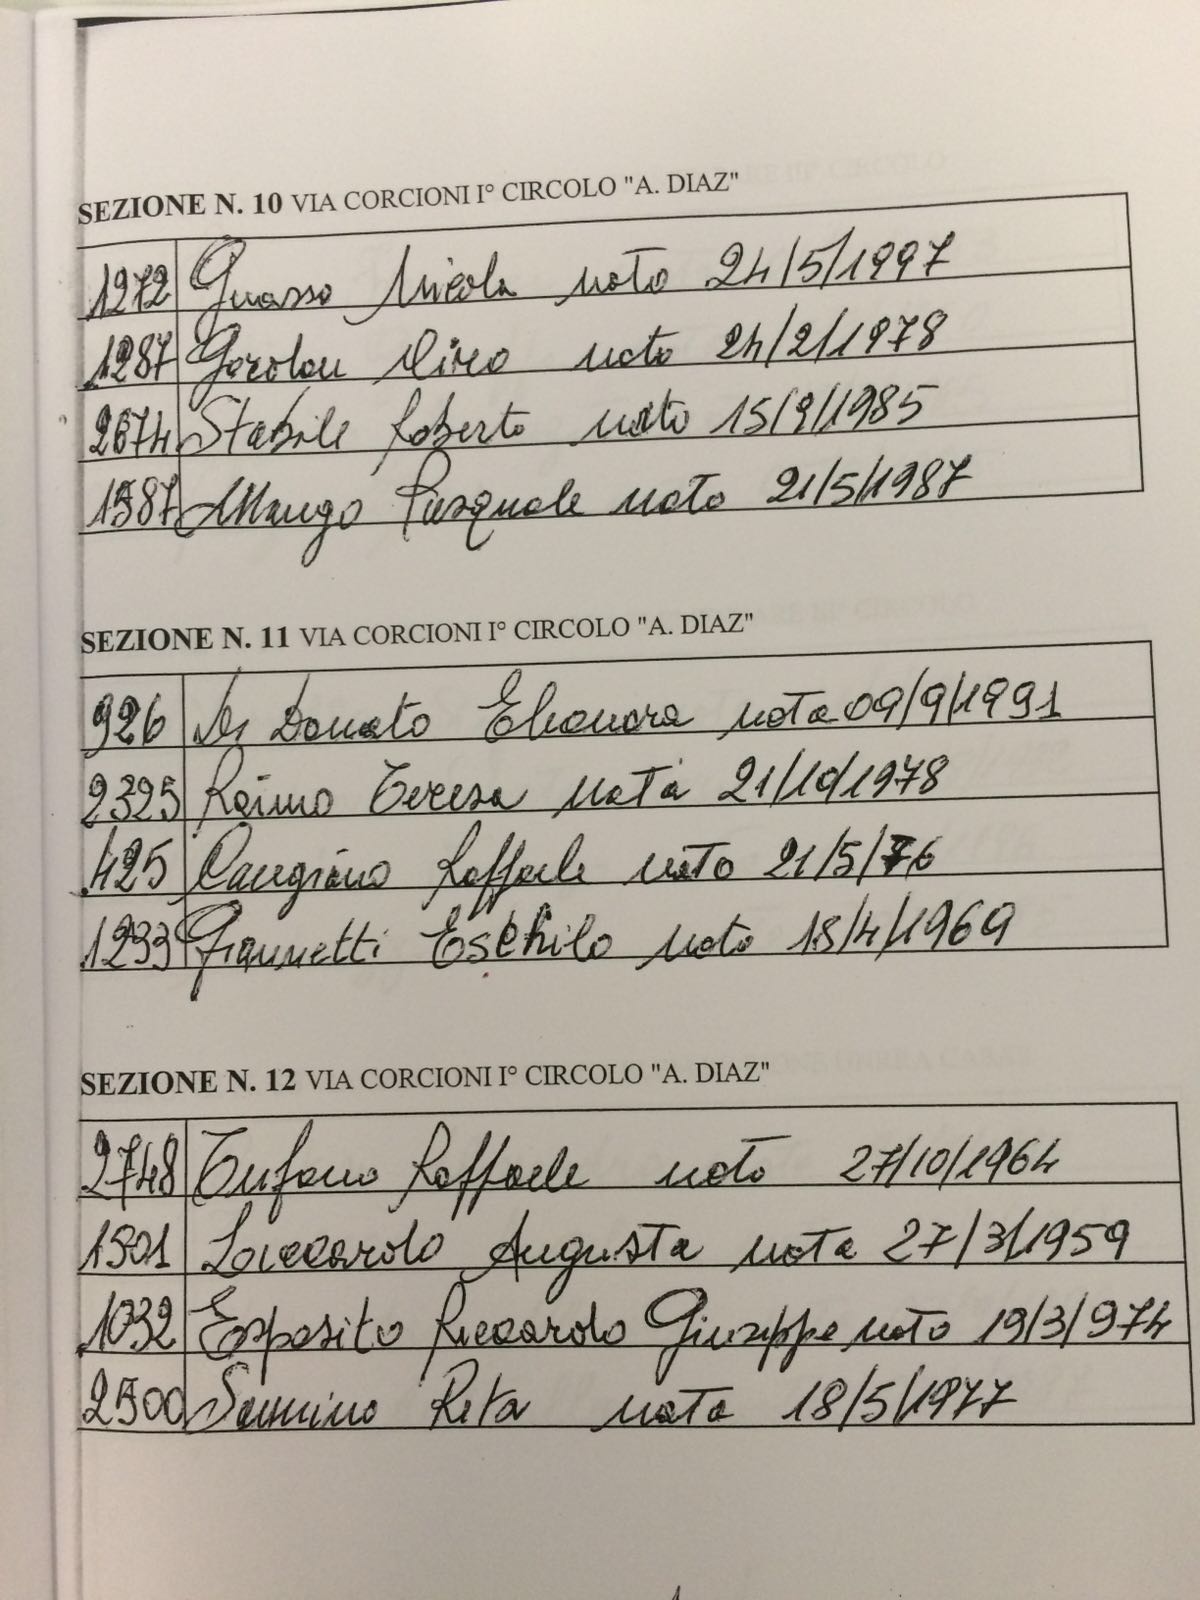 SEZIONE N. 10 VIA CORCIONI I° CIRCOLO "A. DIAZ"
1272 Guasso Nicola nato 24/5/1997
1287 Garolau Ciro nato 24/2/1978
2674 Stabile Roberto nato 15/9/1985
1587 Mango Pasquale nato 21/5/1987
SEZIONE N. 11 VIA CORCIONI I° CIRCOLO "A. DIAZ"
926 Di Donato Eleonora nata 09/9/1991
2325 Raimo Teresa nata 21/10/1978
425 Cangiano Raffaele nato 21/5/76
1233 Giannetti Eschilo nato 18/4/1969
SEZIONE N. 12 VIA CORCIONI I° CIRCOLO "A. DIAZ"
2748 Tufano Raffaele nato 27/10/1964
1501 Augusta nata 27/3/1959
1032 Esposito Riccardo Giuseppe nato 19/3/974
2500 Sannino Rita nata 18/5/1977